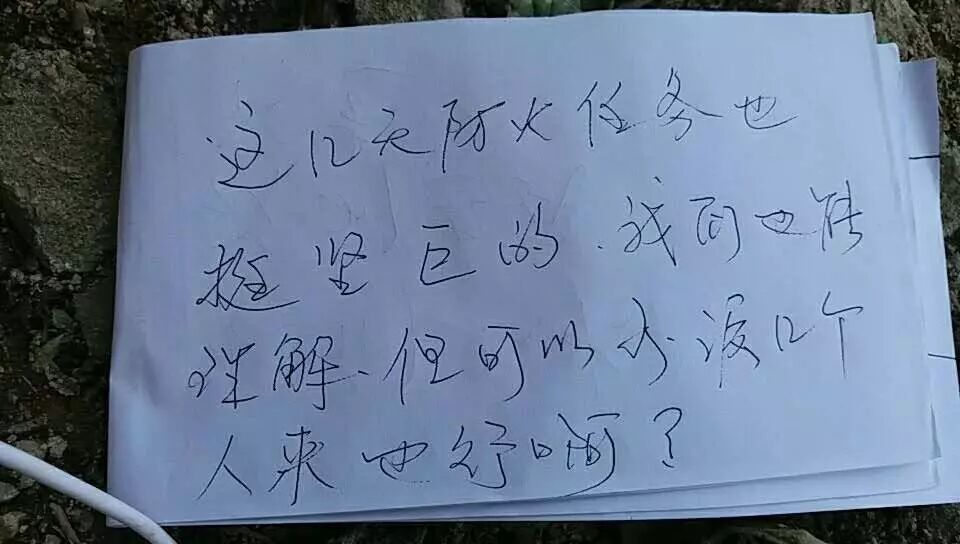 这几天防火任务也
挺坚巨的、我们也能
理解、但可以少派几个
人来也行啊？